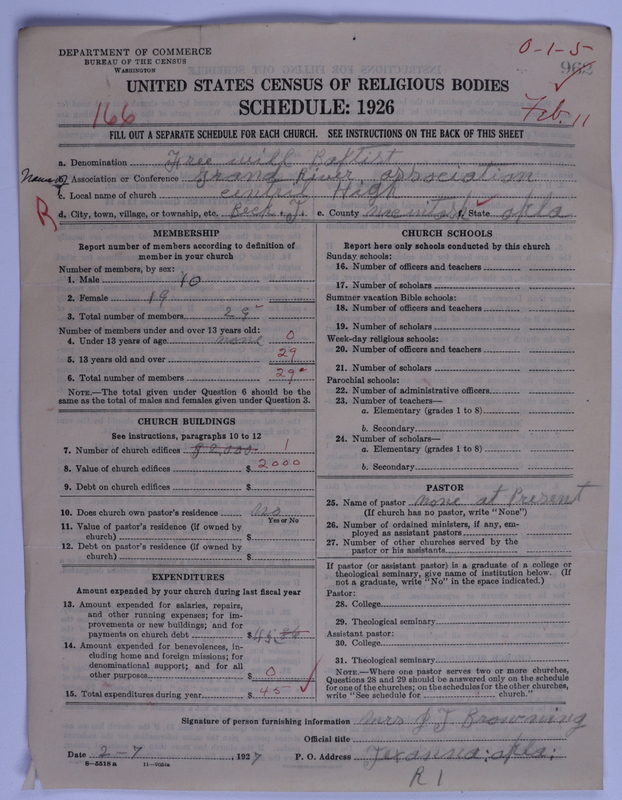 DEPARTMENT OF COMMERCE
BUREAU OF THE CENSUS
WASHINGTON
0-1-5
962
UNITED STATES CENSUS OF RELIGIOUS BODIES
SCHEDULE: 1926
166
Feb. 11
FILL OUT A SEPARATE SCHEDULE FOR EACH CHURCH. SEE INSTRUCTIONS ON THE BACK OF THIS SHEET
a. Denomination Free will Baptist
Name of b. Association or Conference Grand River association
c. Local name of church central High
R
d. City, town, village, or township, etc. Beck. T. e. County Macintosh f. State okla
MEMBERSHIP
Report number of members according to definition of
member in your church
Number of members, by sex:
1. Male 10
2. Female 19
3. Total number of members 29
Number of members under and over 13 years old:
4. Under 13 years of age none 0
5. 13 years old and over 29
6. Total number of members 29
NOTE.—The total given under Question 6 should be
the same as the total of males and females given under Question 3.
CHURCH BUILDINGS
See instructions, paragraphs 10 to 12
7. Number of church edifices $2,000 1
8. Value of church edifices $ 2000
9. Debt on church edifices $
10. Does church own pastor's residence no
Yes or No
11. Value of pastor's residence (if owned by
church) $
12. Debt on pastor's residence (if owned by
church) $
EXPENDITURES
Amount expended by your church during last fiscal year
13. Amount expended for salaries, repairs,
and other running expenses; for im-
provements or new buildings; and for
payments on church debt $45.00
14. Amount expended for benevolences, in-
cluding home and foreign missions; for
denominational support; and for all
other purposes $ 0
15. Total expenditures during year $ 45
CHURCH SCHOOLS
Report here only schools conducted by this church
Sunday schools:
16. Number of officers and teachers
17. Number of scholars
Summer vacation Bible schools:
18. Number of officers and teachers
19. Number of scholars
Week-day religious schools:
20. Number of officers and teachers
21. Number of scholars
Parochial schools:
22. Number of administrative officers
23. Number of teachers—
a. Elementary (grades 1 to 8)
b. Secondary
24. Number of scholars—
a. Elementary (grades 1 to 8)
b. Secondary
PASTOR
25. Name of pastor none at Present
(If church has no pastor, write "None")
26. Number of ordained ministers, if any, em-
ployed as assistant pastors
27. Number of other churches served by the
pastor or his assistants
If pastor (or assistant pastor) is a graduate of a college or
theological seminary, give name of institution below. (If
not a graduate, write "No" in the space indicated.)
Pastor:
28. College
29. Theological seminary
Assistant pastor:
30. College
31. Theological seminary
NOTE.—Where one pastor serves two or more churches,
Questions 28 and 29 should be answered only on the schedule
for one of the churches; on the schedules for the other churches,
write "See schedule for church."
Signature of person furnishing information Mrs J J Browning
Official title
Date 2-7, 1927 P. O. Address Texanna, okla,
8-5518 a 11-1054a
R 1